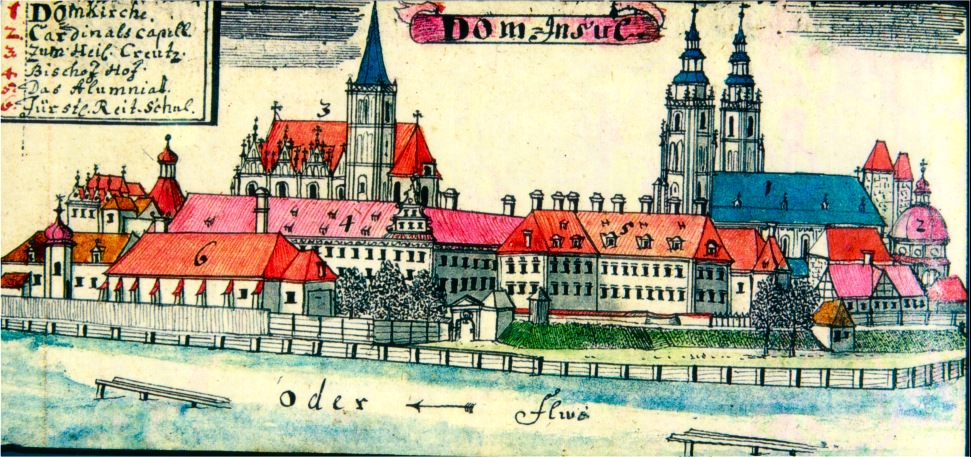 Dom Insul.
1 Domkirche.
2 Cardinals Capell.
3 Zum Heil. Creutz.
4 Bischof Hof.
5 Das Alumniat.
6 Fürstl. Reit-Schul.
3
1
4
5
2
6
Oder Flus